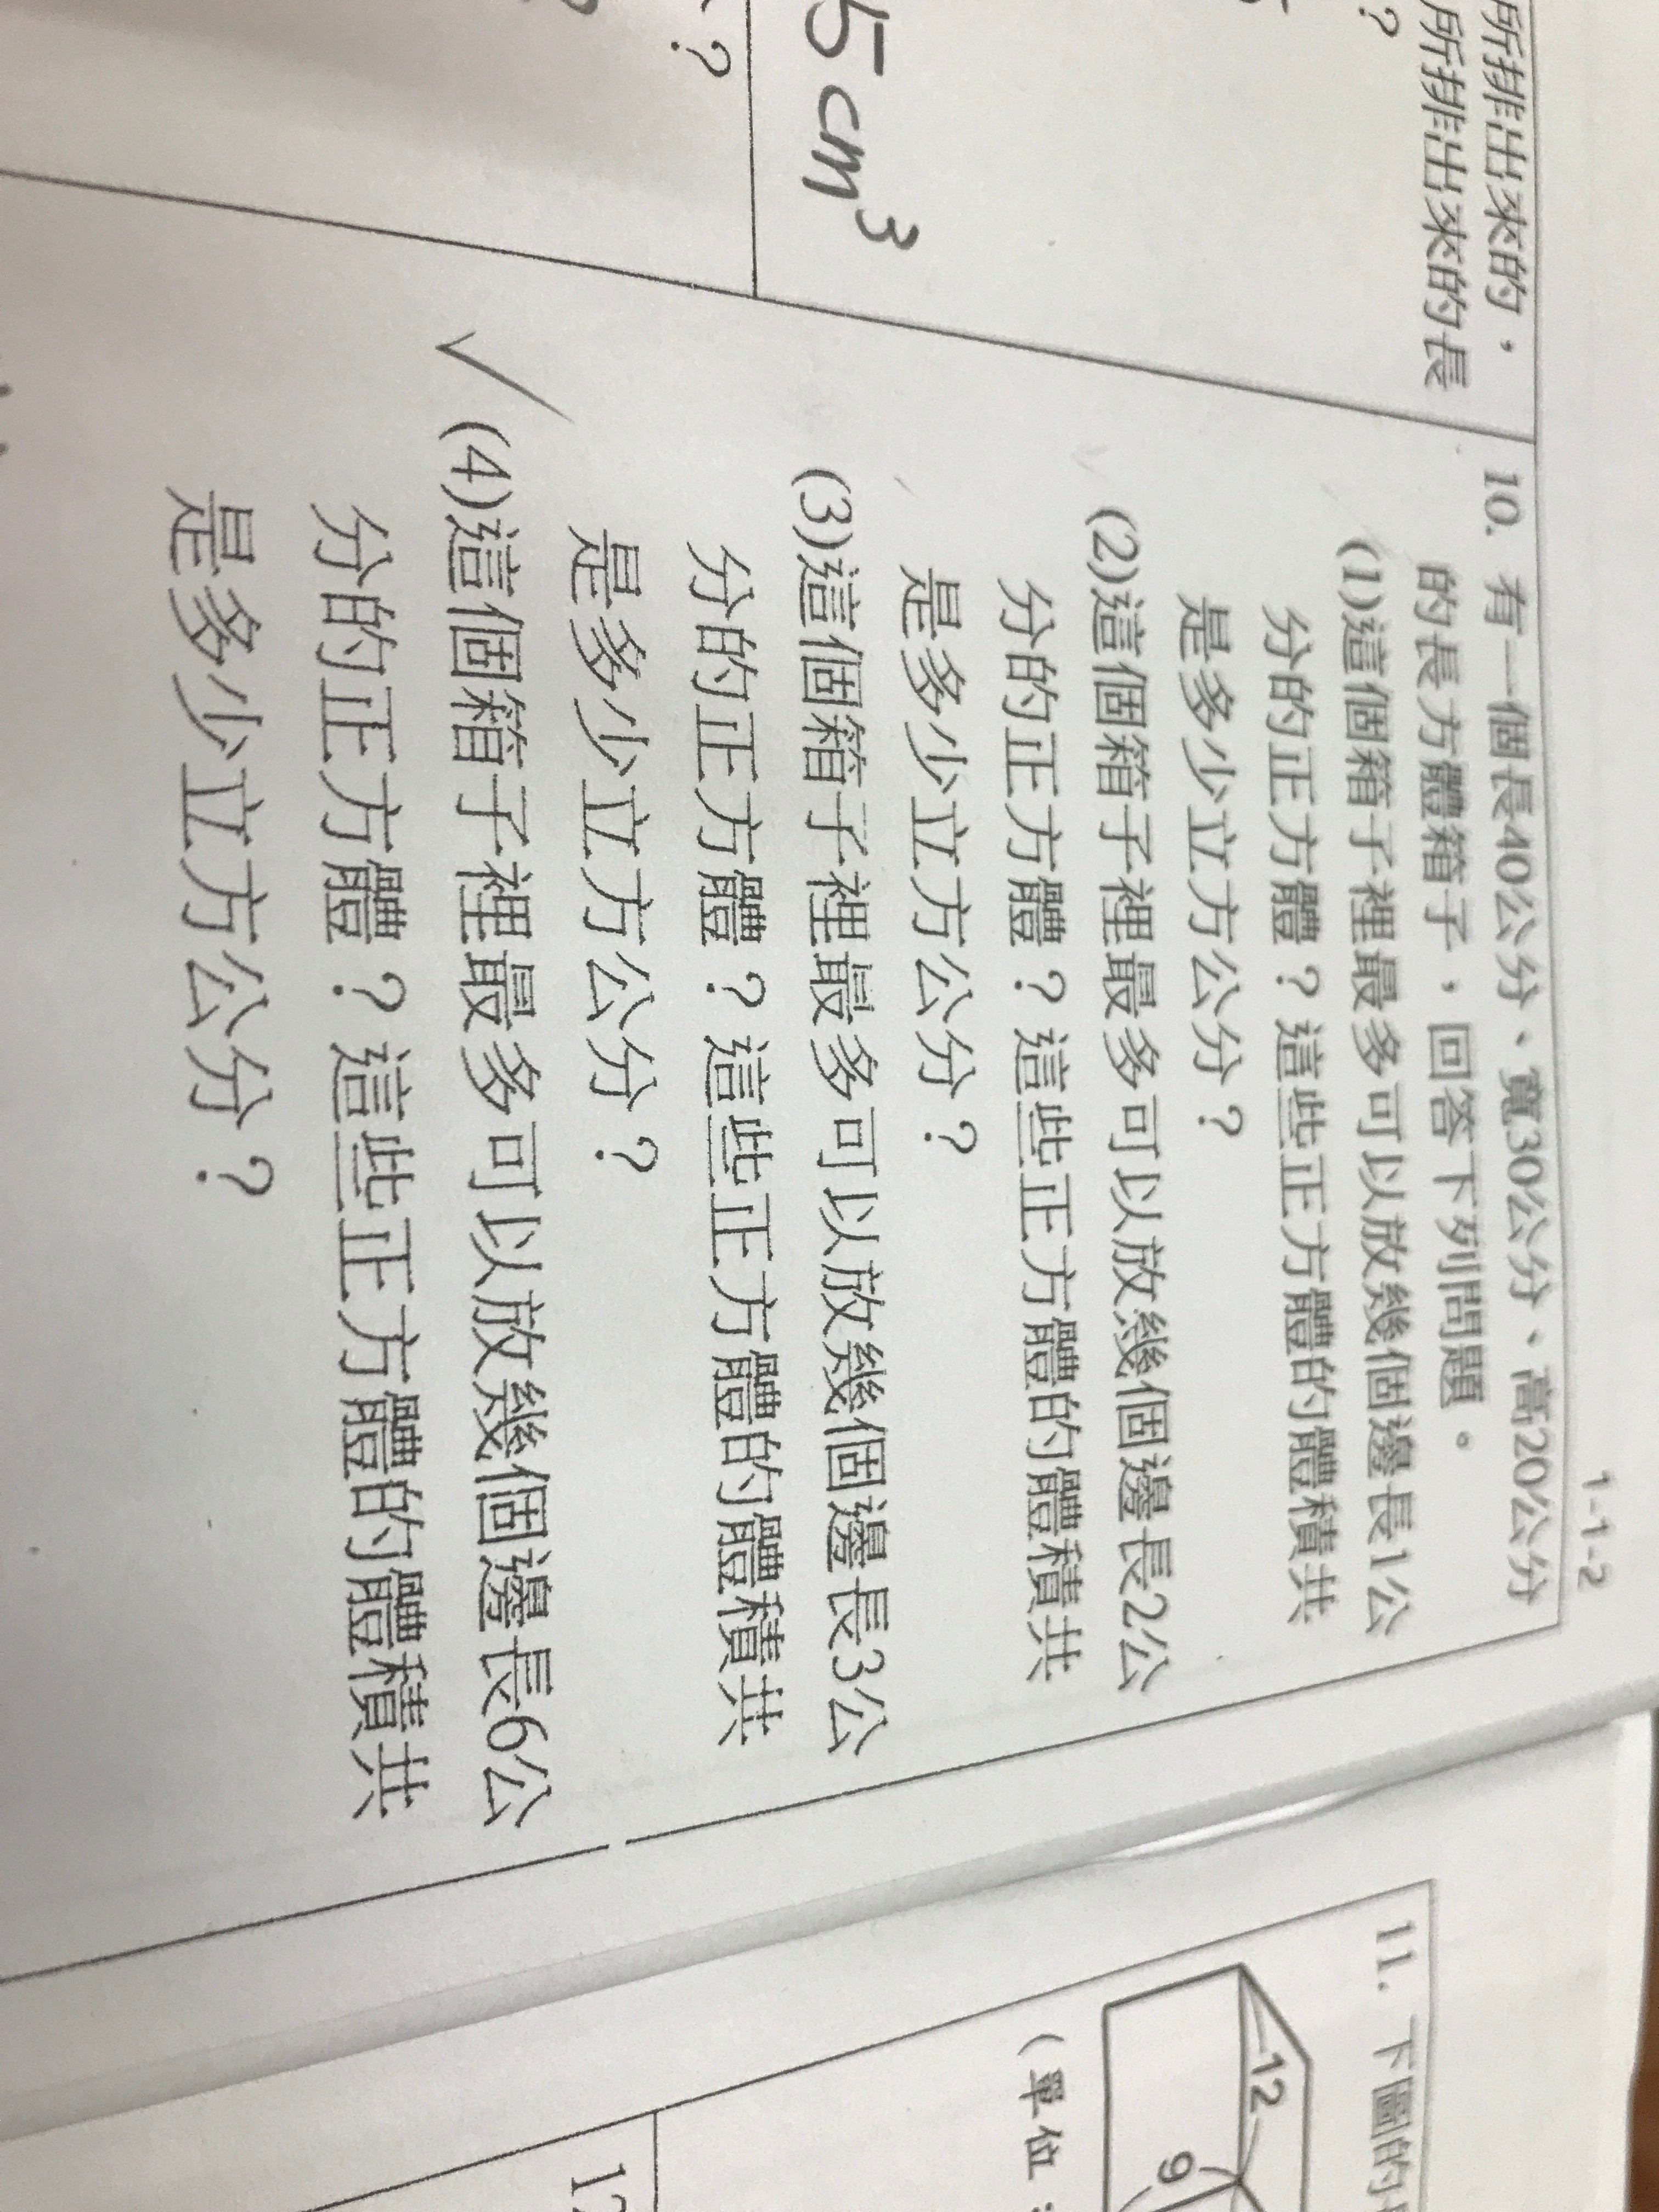 所排出來的，
所排出來的長
？
？
5cm³
1-1-2
10. 有一個長40公分、寬30公分、高20公分
的長方體箱子，回答下列問題。
(1)這個箱子裡最多可以放幾個邊長1公
分的正方體？這些正方體的體積共
是多少立方公分？
(2)這個箱子裡最多可以放幾個邊長2公
分的正方體？這些正方體的體積共
是多少立方公分？
(3)這個箱子裡最多可以放幾個邊長3公
分的正方體？這些正方體的體積共
是多少立方公分？
(4)這個箱子裡最多可以放幾個邊長6公
分的正方體？這些正方體的體積共
是多少立方公分？
11. 下圖的
12
9
(單位：